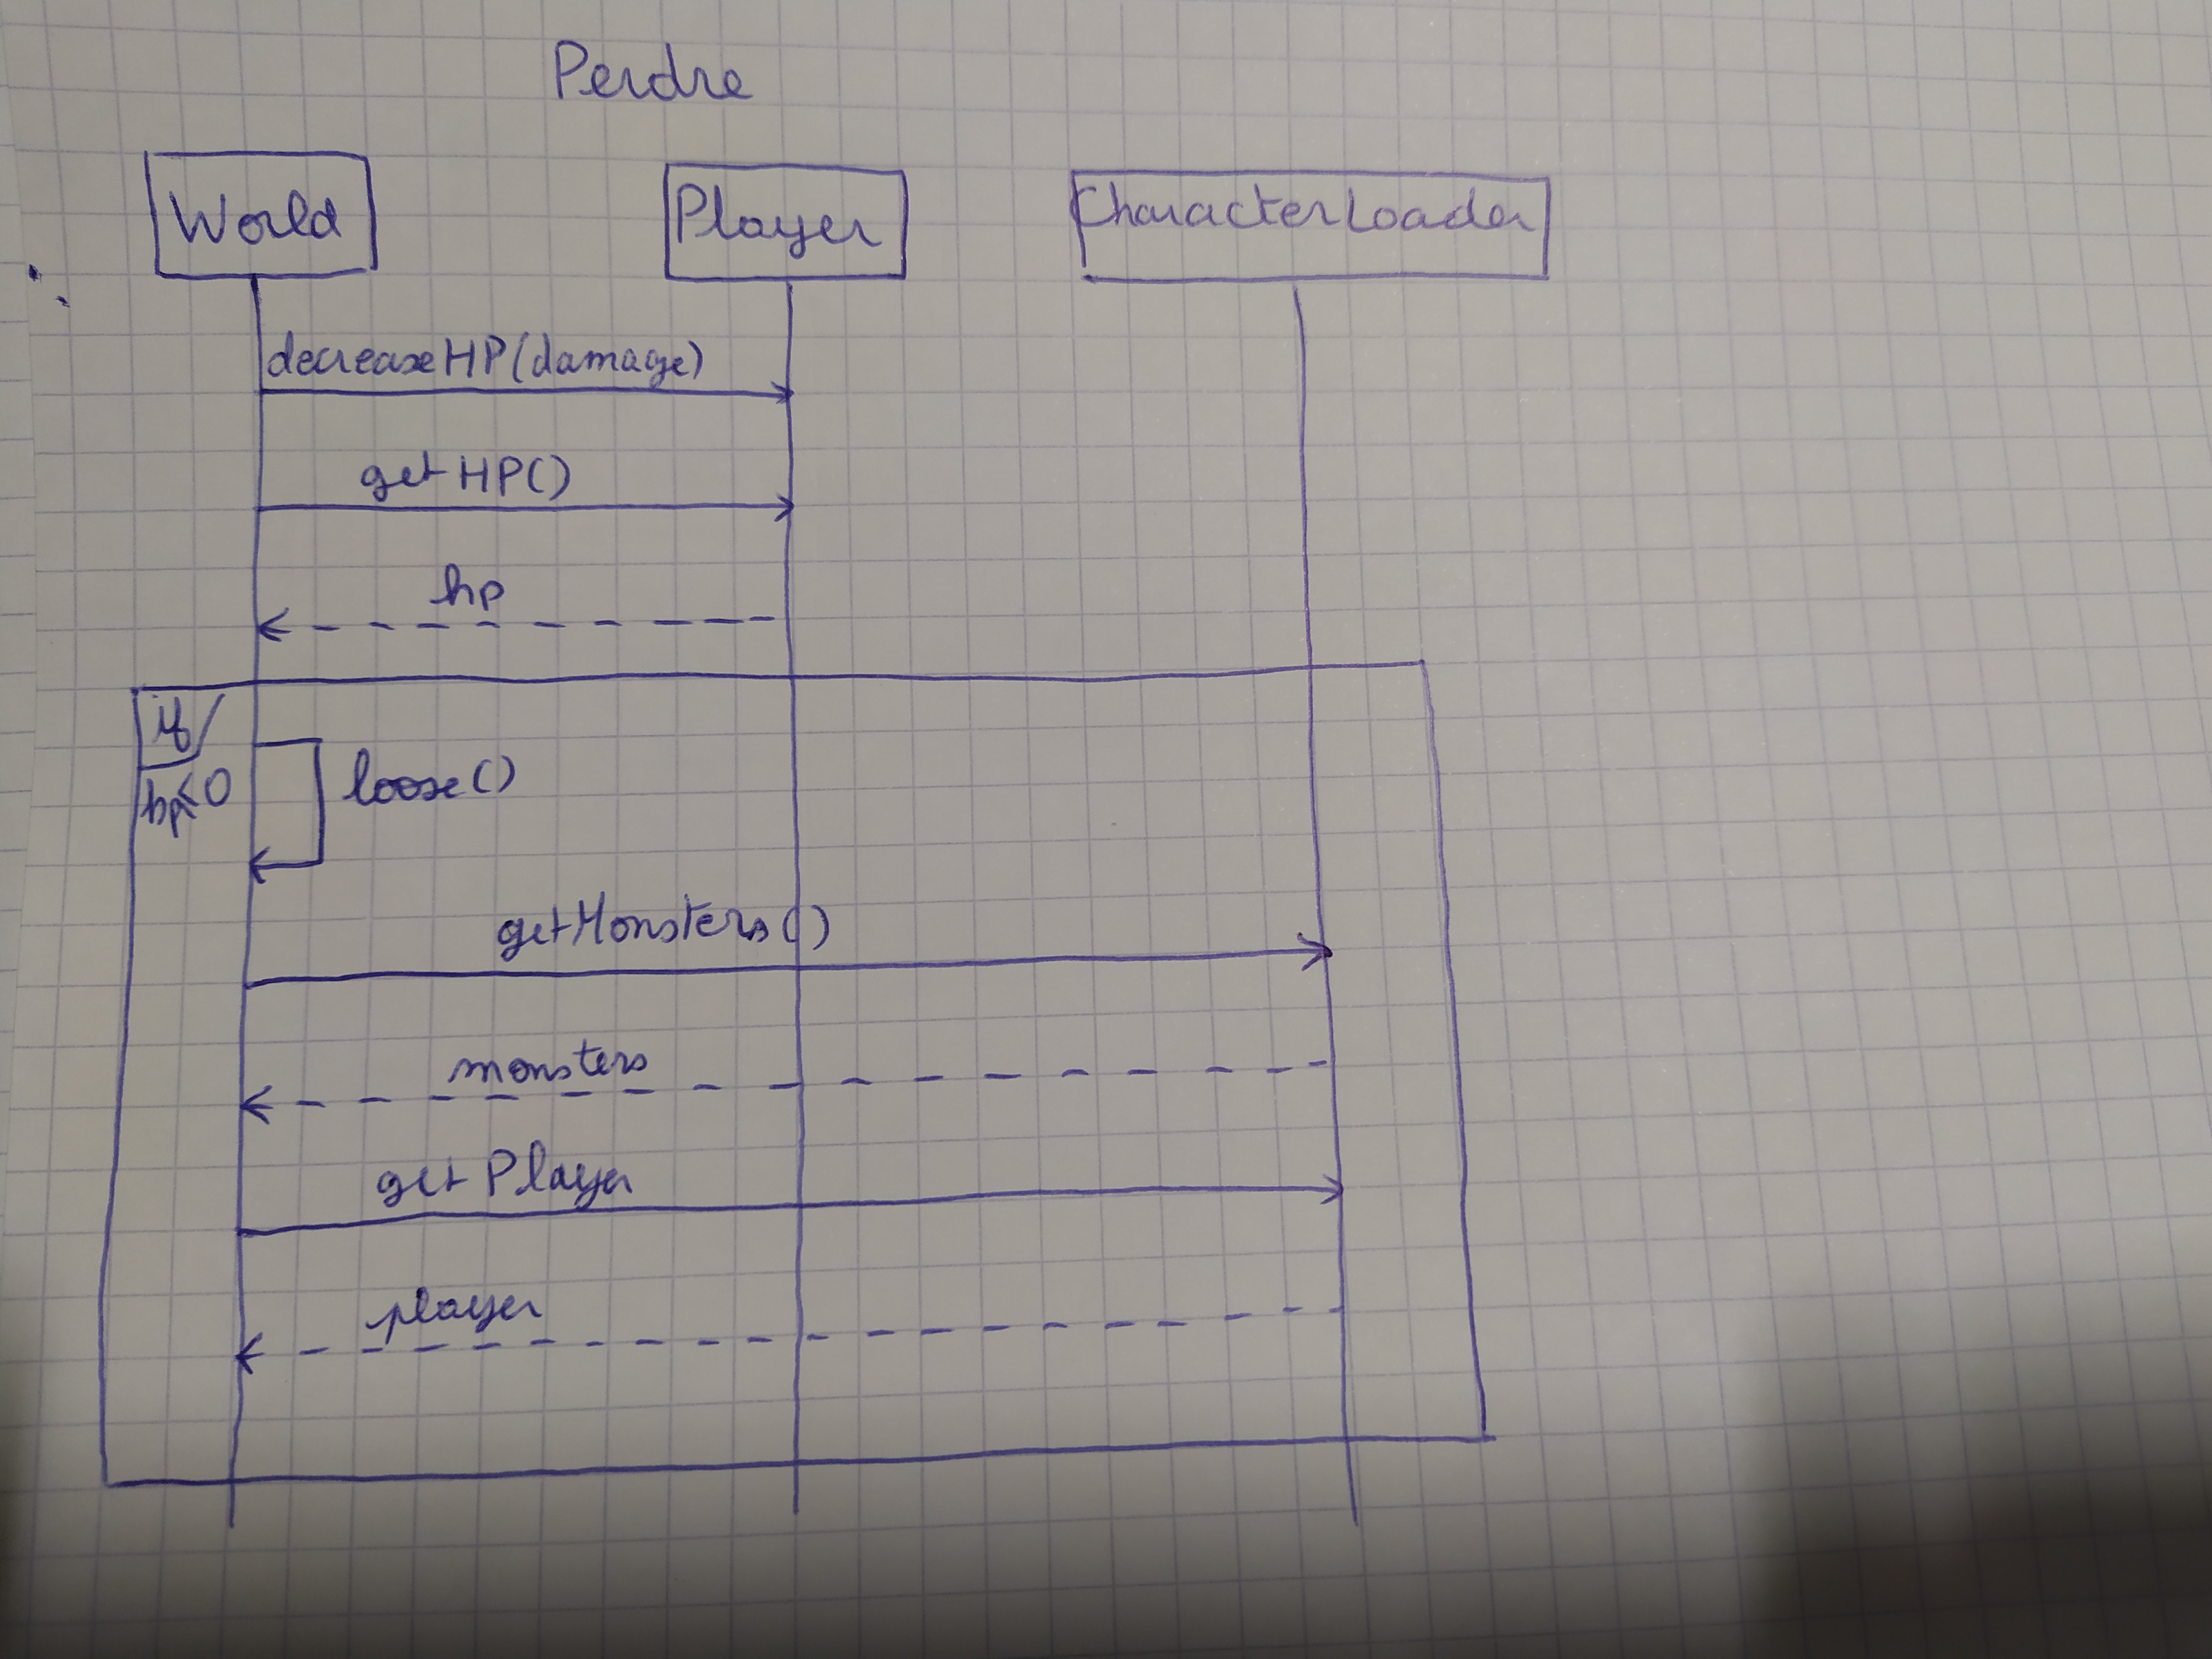 Perdre
World
Player
CharacterLoader
decreaseHP(damage)
getHP()
hp
if
hp<0
loose()
getMonsters()
monsters
getPlayer
player